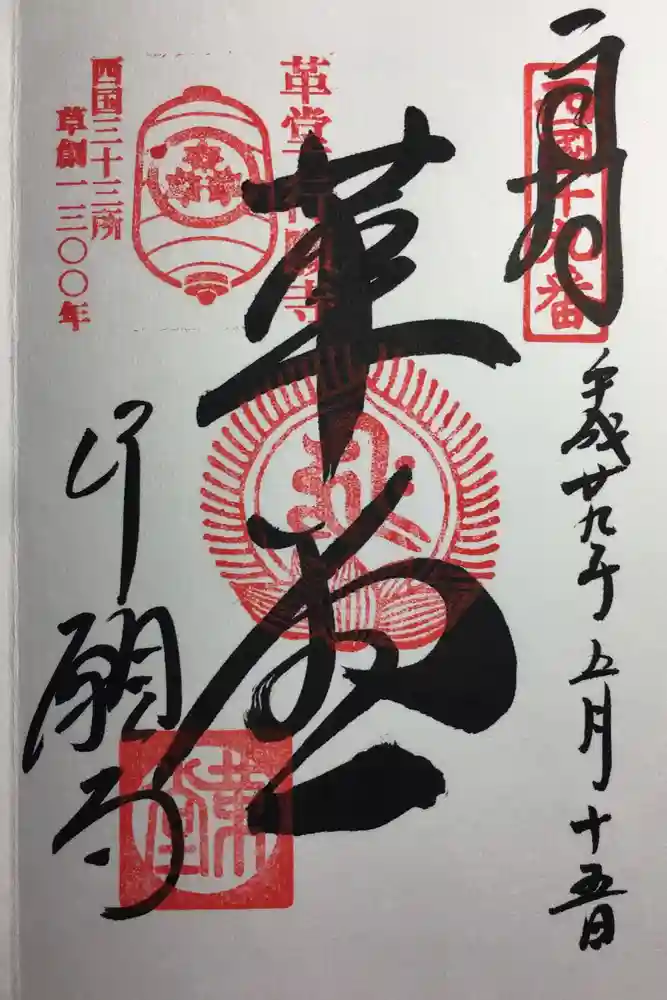 奉拝
西国十九番
平成廿九年五月十五日
革堂
革堂行願寺
西国三十三所
草創一三〇〇年
行願寺
革堂